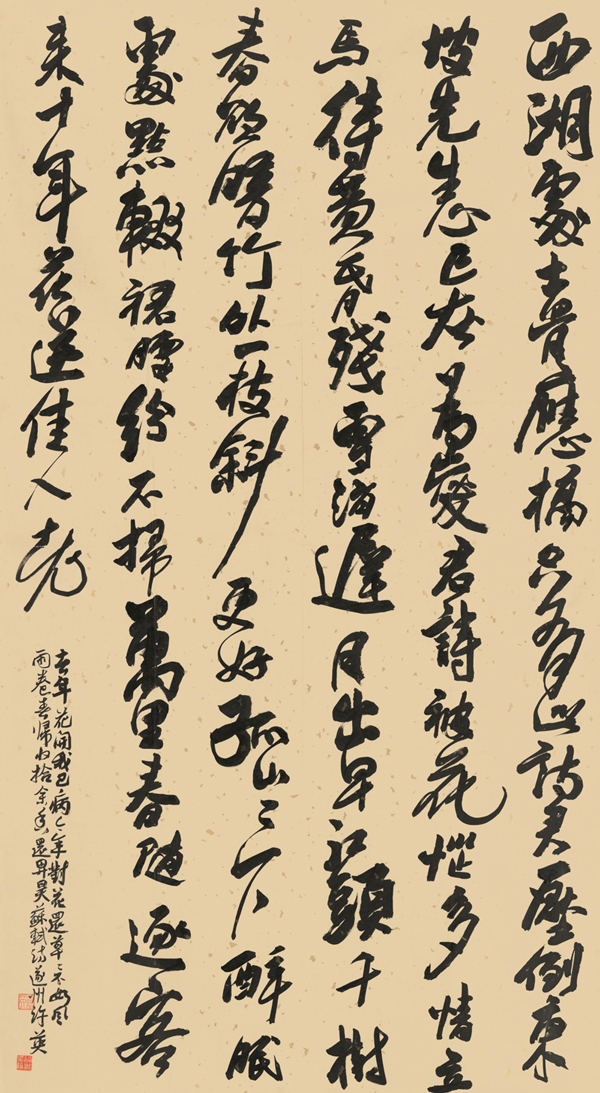 西湖處士骨應槁只有此詩君壓倒東
坡先生心已灰為愛君詩被花惱多情立
馬待黃昏殘雪消遲月出早江頭千樹
春欲暗竹外一枝斜更好孤山〻下醉眠
處點輟裙腰紛不掃萬里春隨逐客
來十年花送佳人老
去年花開我已病今年對花還草〻不如風
雨卷春歸收拾余香還畀昊蘇軾詩遂州許英